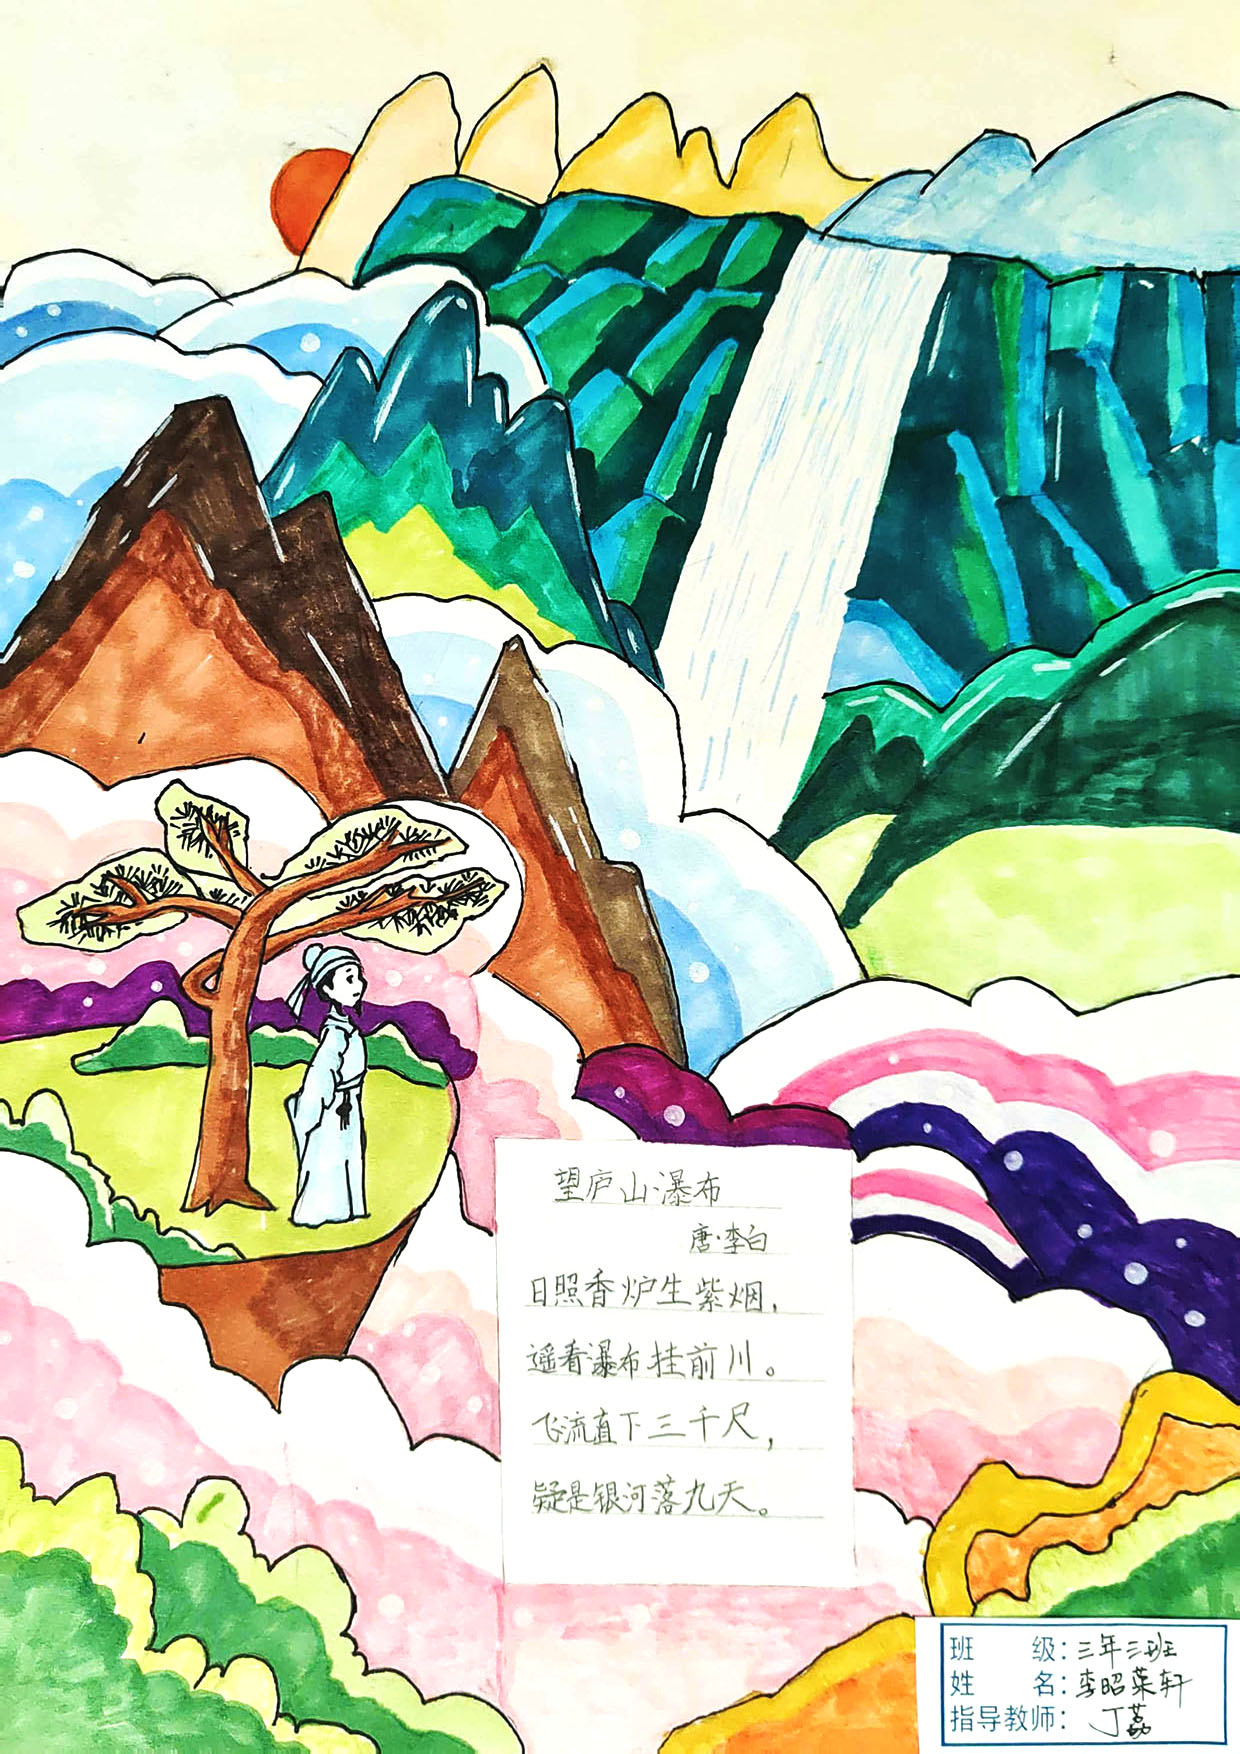 望庐山瀑布
唐·李白
日照香炉生紫烟,
遥看瀑布挂前川。
飞流直下三千尺,
疑是银河落九天。
班 级:三年三班
姓 名:李昭菉轩
指导教师:丁荔